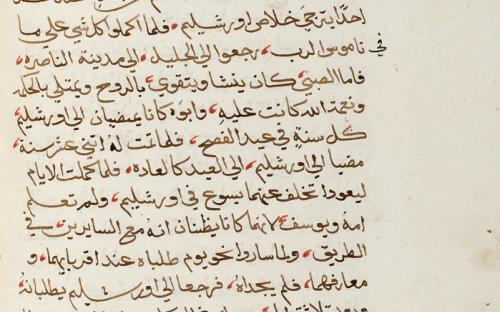 احدًا يترجي خلاص اورشليم، فلما اكملوا كل شي علي ما
في ناموس الرب، رجعوا الي الجليل، الي مدينة الناصره،
فاما الصبي كان ينشا ويتقوي بالروح ويمتلي بالحكمه
ونعمة الله كانت عليه، وابوه كانا يمضيان الي اورشليم
كل سنة في عيد الفصح، فلما تمت له اثني عشر سنة،
مضيا الي اورشليم، الي العيد كالعاده، فلما كملت الايام
ليعودا تخلف عنهما يسوع في اورشليم، ولم تعلم
امه ويوسف لانهما كانا يظنان انه مع السايرين في
الطريق، ولما ساروا نحو يوم طلباه عند اقربايهما، و
معارفهما، فلم يجداه، فرجعا الي اورشليم يطلبانه